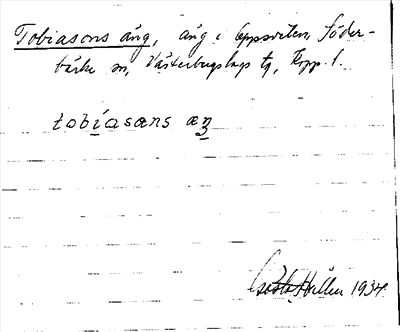 Tobiasons äng, äng i Uppsveten, Söder-
bärke sn, Västerbergslags tg, Kopp. l.
tobíasɷns æꞑ
Gösta Hallin 1934.